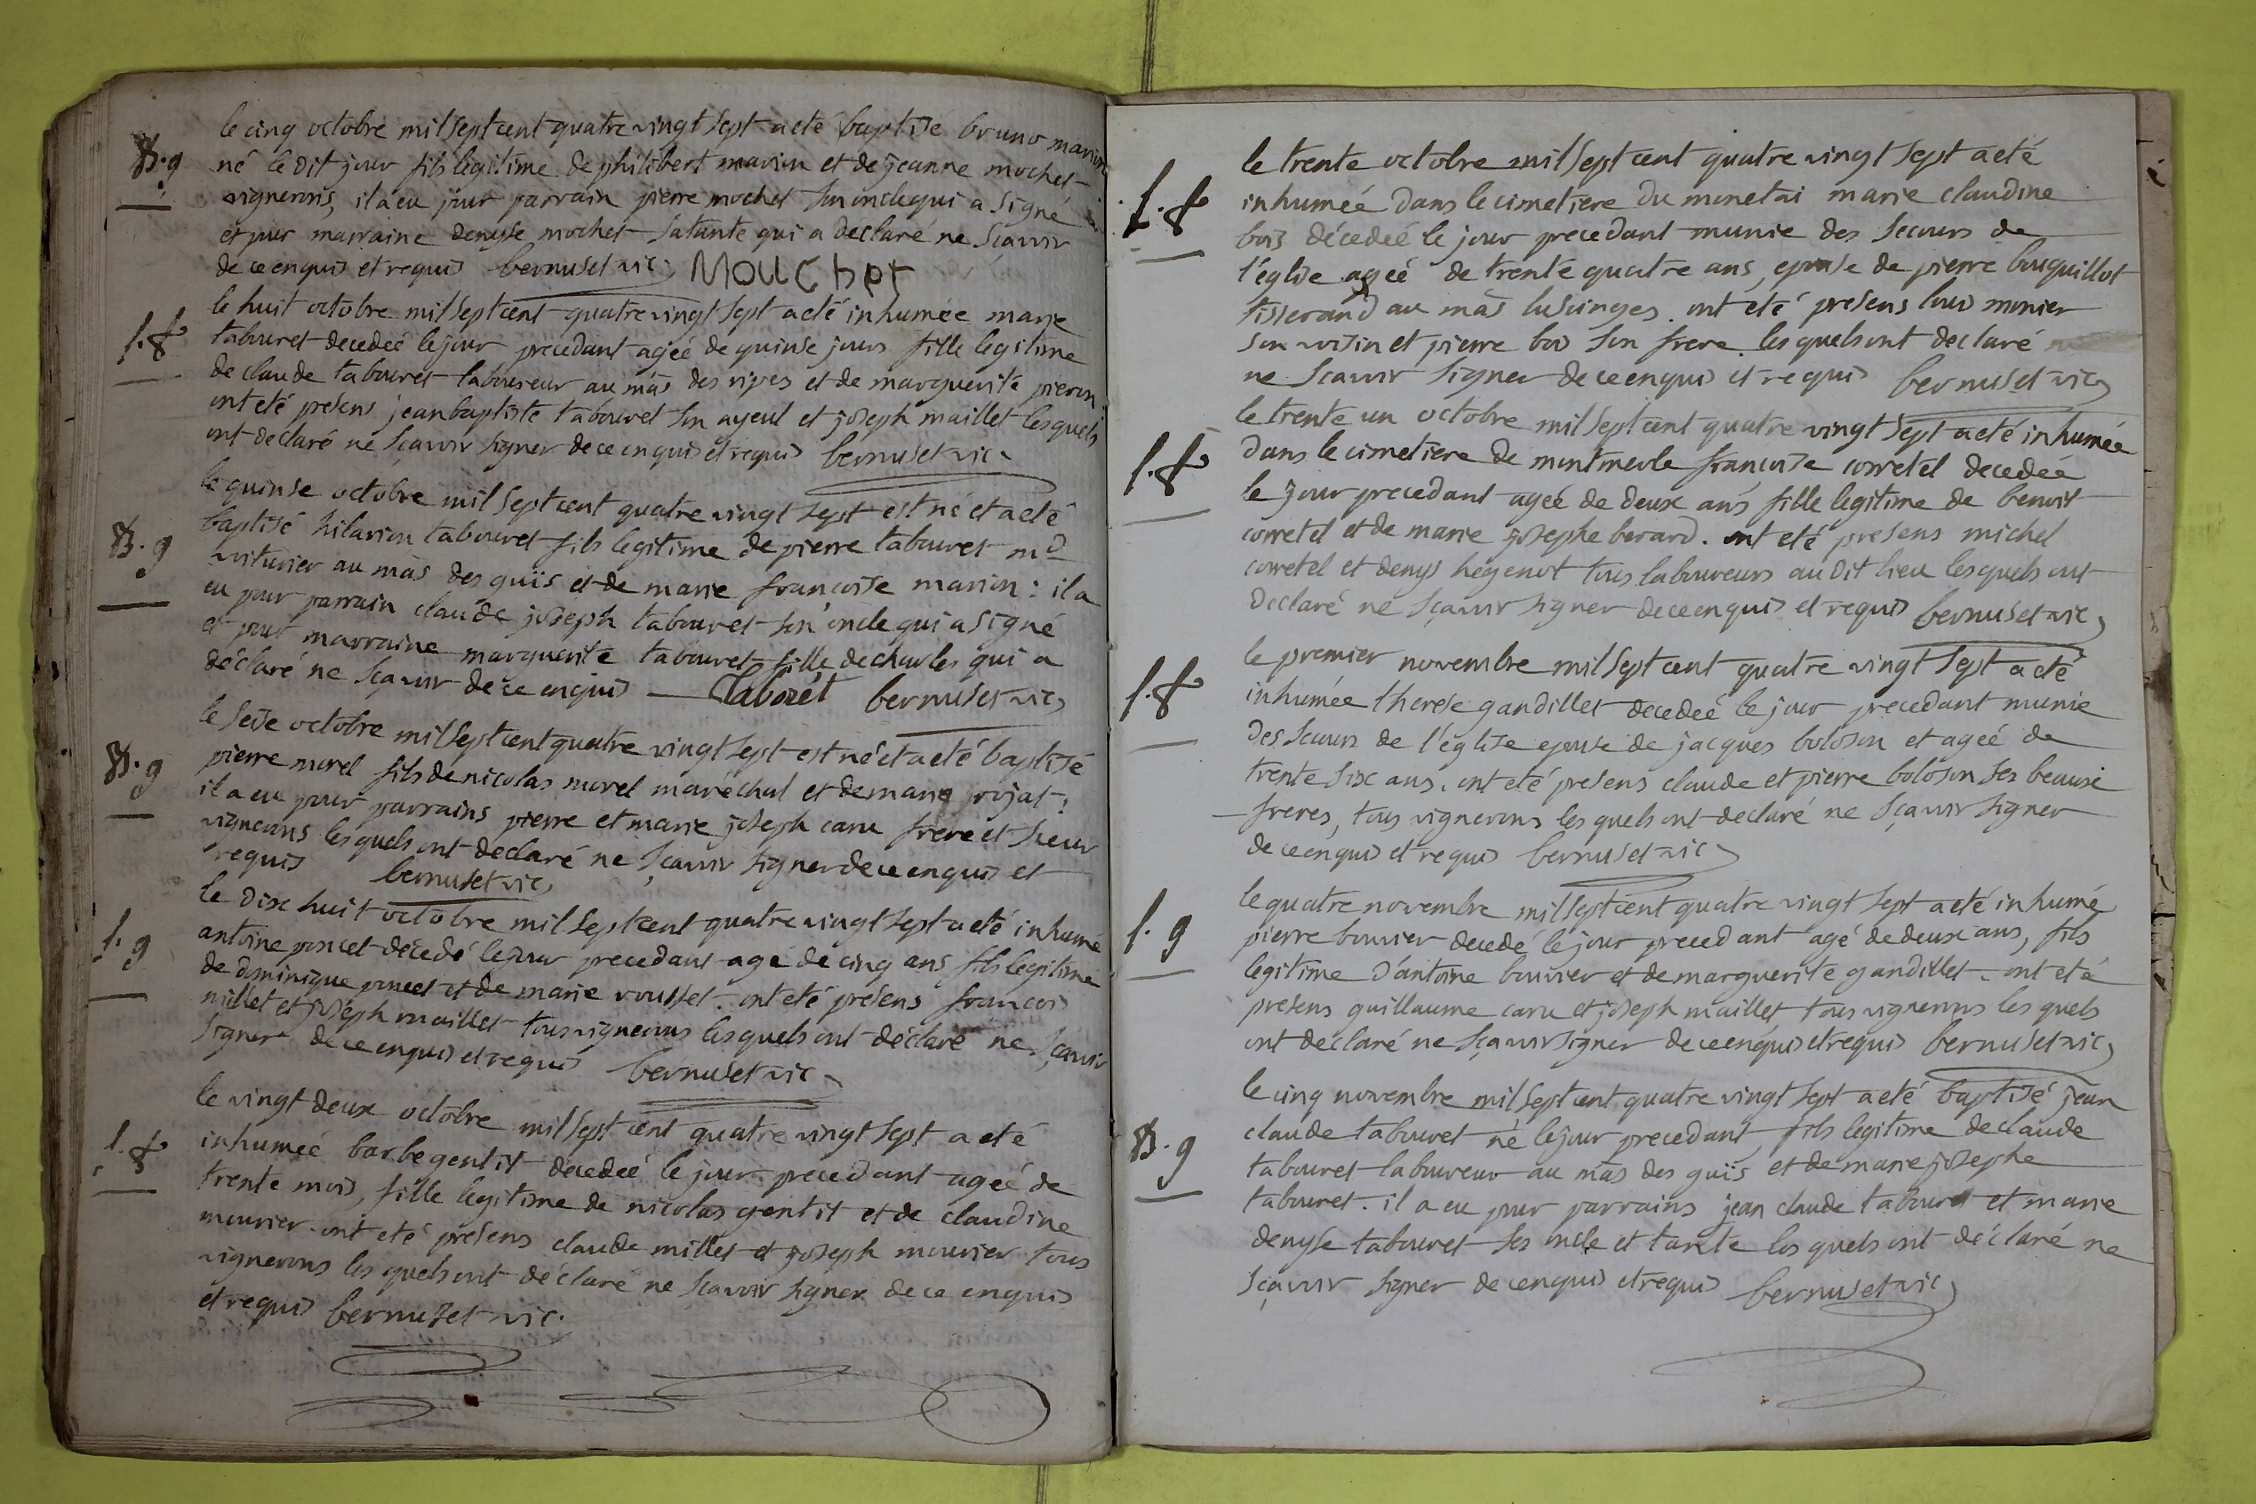 B.g
le cinq octobre mil sept cent quatre vingt sept a eté baptise bruno marion
né le dit jour fils legitime de philibert marion et de jeanne mochet
vignerons, il a eu pour parrain pierre mochet son oncle qui a signé
et pour marraine denyse mochet sa tante qui a declaré ne sçavoir
de ce enquis et requis bernuset vic. Mouchet
f.f
le huit octobre mil sept cent quatre vingt sept a eté inhumée marie
tabouret decedeé le jour precedant ageé de quinse jours fille legitime
de claude tabouret laboureur au mas des ripes et de marguerite pieron
ont eté presens jean baptiste tabouret son ayeul et joseph maillet lesquels
ont declaré ne sçavoir signer de ce enquis et requis bernuset vic.
B.g
le quinse octobre mil sept cent quatre vingt sept est né et a eté
baptisé hilarion tabouret fils legitime de pierre tabouret md
voiturier au mas des guïs et de marie françoise marion : il a
eu pour parrain claude joseph tabouret son oncle qui a signé
et pour marraine marguerite tabouret fille de charles qui a
déclaré ne sçavoir de ce enquis Taborét bernuset vic.
B.g
le seise octobre mil sept cent quatre vingt sept est né et a eté baptisé
pierre morel fils de nicolas morel maréchal et de marie rojat :
il a eu pour parrains pierre et marie joseph caru frere et sieur
vignerons lesquels ont declaré ne sçavoir signer de ce enquis et
requis bernuset vic.
f.g
le dix huit octobre mil sept cent quatre vingt sept a eté inhumé
antoine poncet décedé le jour precedant agé de cinq ans fils legitime
de dominique poncet et de marie rousset. ont eté presens françois
millet et joseph maillet tous vignerons lesquels ont déclaré ne sçavoir
signer de ce enquis et requis bernuset vic.
f.f
le vingt deux octobre mil sept cent quatre vingt sept a eté
inhumeé barbe gentit décedeé le jour precedant ageé de
trente mois, fille legitime de nicolas gentit et de claudine
mourier. ont eté presens claude millet et joseph mourier tous
vignerons les quels ont déclaré ne sçavoir signer de ce enquis
et requis bernuset vic.
f.f
le trente octobre mil sept cent quatre vingt sept a eté
inhumée dans le cimetiere du monetai marie claudine
bois décedeé le jour precedant munie des secours de
l'église ageé de trente quatre ans, epouse de pierre bouquillot
tisserand au mas lusinges. ont eté presens louis monier
son voisin et pierre bois son frere. les quels ont declaré
ne sçavoir signer de ce enquis et requis bernuset vic.
f.f
le trente un octobre mil sept cent quatre vingt sept a eté inhumée
dans le cimetiere de montmerle françoise corretel decedée
le jour precedant ageé de deux ans fille legitime de benoit
corretel et de marie josephe berard. ont eté presens michel
corretel et denys hegenot tous laboureurs au dit lieu lesquels ont
declaré ne sçavoir signer de ce enquis et requis bernuset vic.
f.f
le premier novembre mil sept cent quatre vingt sept a eté
inhumée therese gandillet decedeé le jour precedant munie
des secours de l'église epouse de jacques boloson et ageé de
trente six ans. ont eté presens claude et pierre boloson ses beaux
freres, tous vignerons les quels ont declaré ne sçavoir signer
de ce enquis et requis bernuset vic.
f.g
le quatre novembre mil sept cent quatre vingt sept a eté inhumé
pierre bouvier decedé le jour precedant agé de deux ans, fils
legitime d'antoine bouvier et de marguerite gandillet. ont eté
presens guillaume caru et joseph maillet tous vignerons les quels
ont declaré ne sçavoir signer de ce enquis et requis bernuset vic.
B.g
le cinq novembre mil sept cent quatre vingt sept a eté baptisé jean
claude tabouret né le jour precedant, fils legitime de claude
tabouret laboureur au mas des guïs et de marie josephe
tabouret. il a eu pour parrains jean claude tabouret et marie
denyse tabouret ses oncle et tante les quels ont déclaré ne
sçavoir signer de ce enquis et requis bernuset vic.